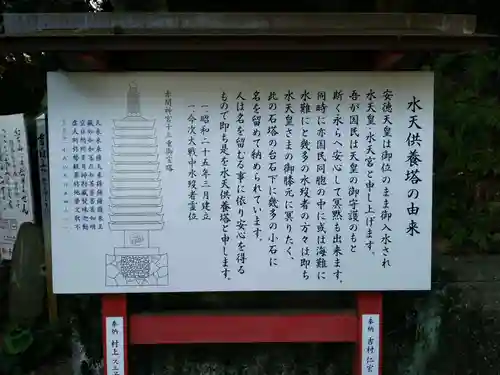 水天供養塔の由来
安徳天皇は御位のまま御入水され
水天皇・水天宮と申し上げます。
吾が国民は天皇の御守護のもと
断く永らへ安心して冥黙も出来ます。
同時に亦国民同胞の中に或は海難に
水難にと幾多の水歿者の方々は即ち
水天皇さまの御膝元に冥りたく、
此の石塔の台石下に幾多の小石に
名を留めて納められています。
人は名を留むる事に依り安心を得る
もので即ち是を水天供養塔と申します。
一 昭和二十五年三月建立
一 今次大戦中水歿者霊位
赤間神宮十三重御宝塔
奉納
村上
奉納
吉村仁宏